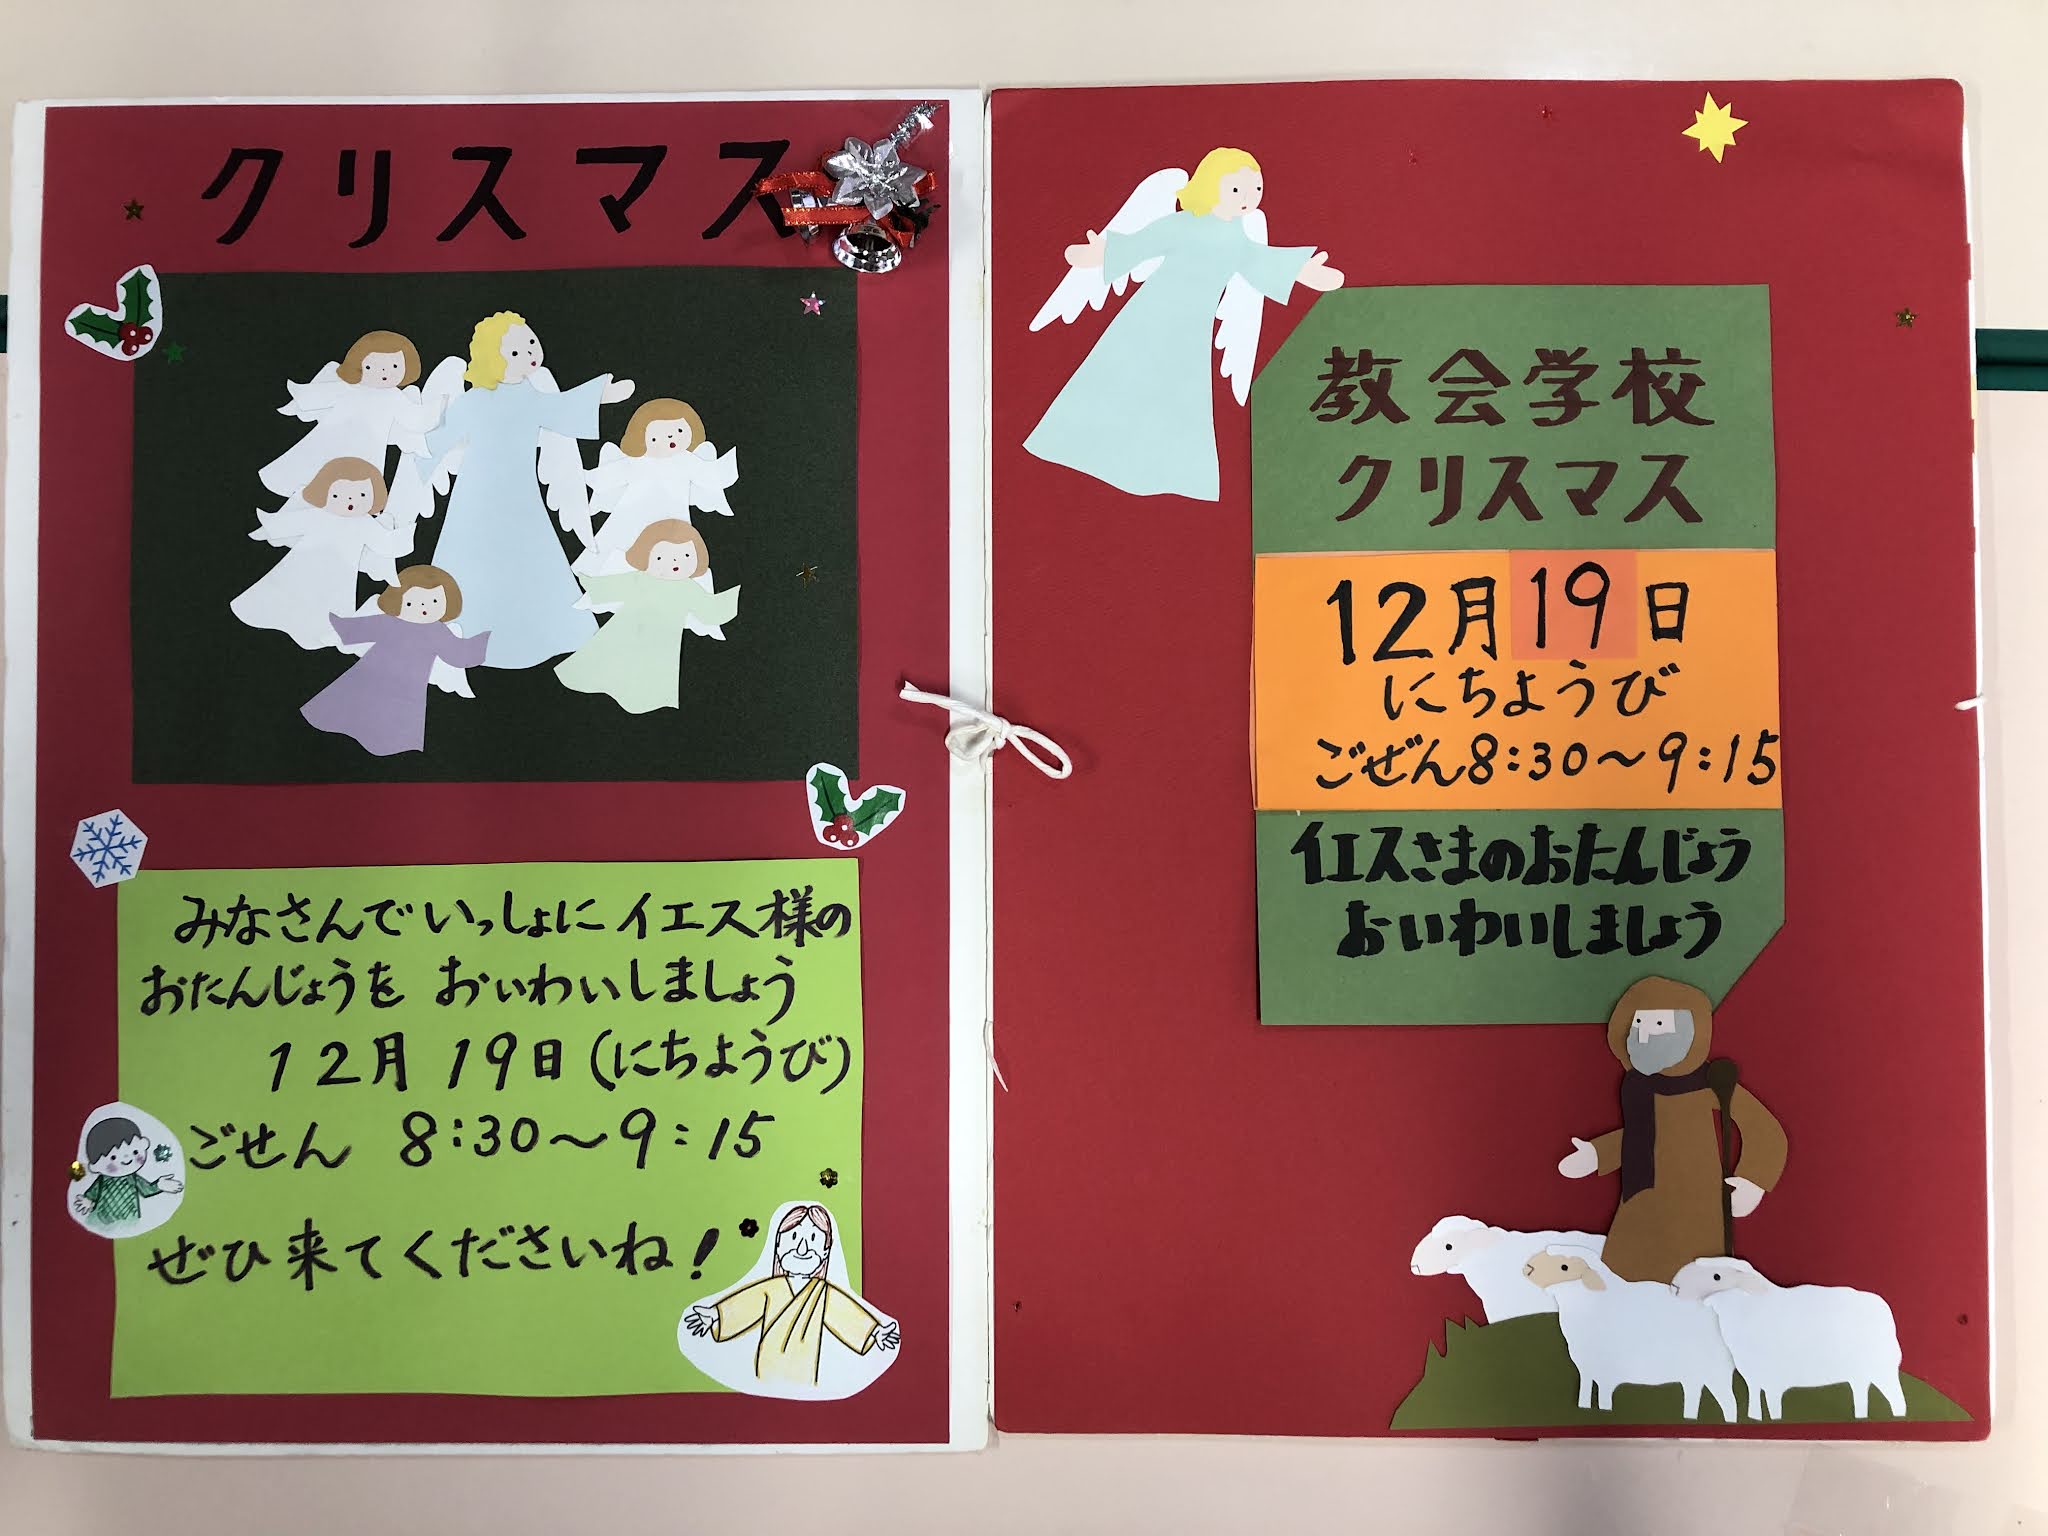 クリスマス
みなさんでいっしょにイエス様の
おたんじょうを おいわいしましょう
12月 19日(にちようび)
ごせん 8:30〜9:15
ぜひ来てくださいね!
教会学校
クリスマス
12月19日
にちようび
ごぜん8:30〜9:15
イエスさまのおたんじょう
おいわいしましょう